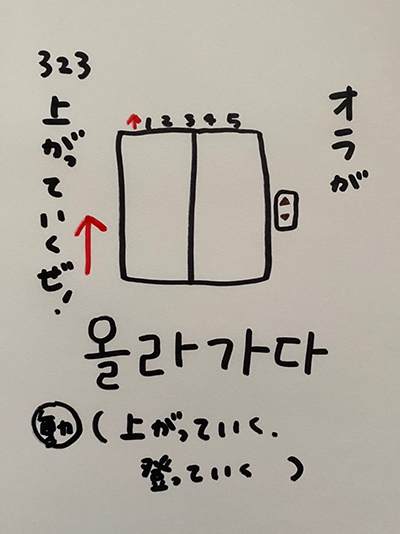 323
オラが
上がっていくぜ!
↑1 2 3 4 5
올라가다
動 (上がっていく.
登っていく )